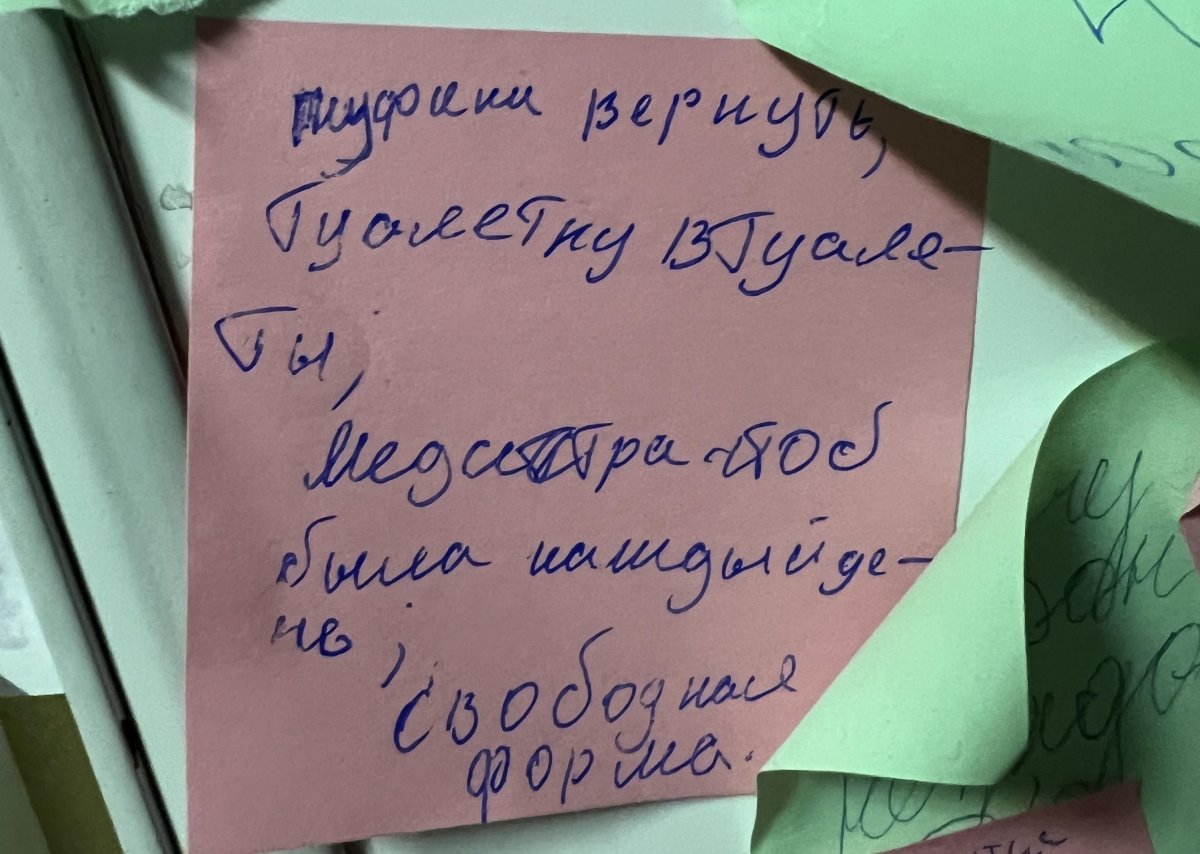 пуфики вернуть,
Туалетку в Туале-
Ты,
Медсетра чтоб
была каждый де-
нь;
Свободная
форма.